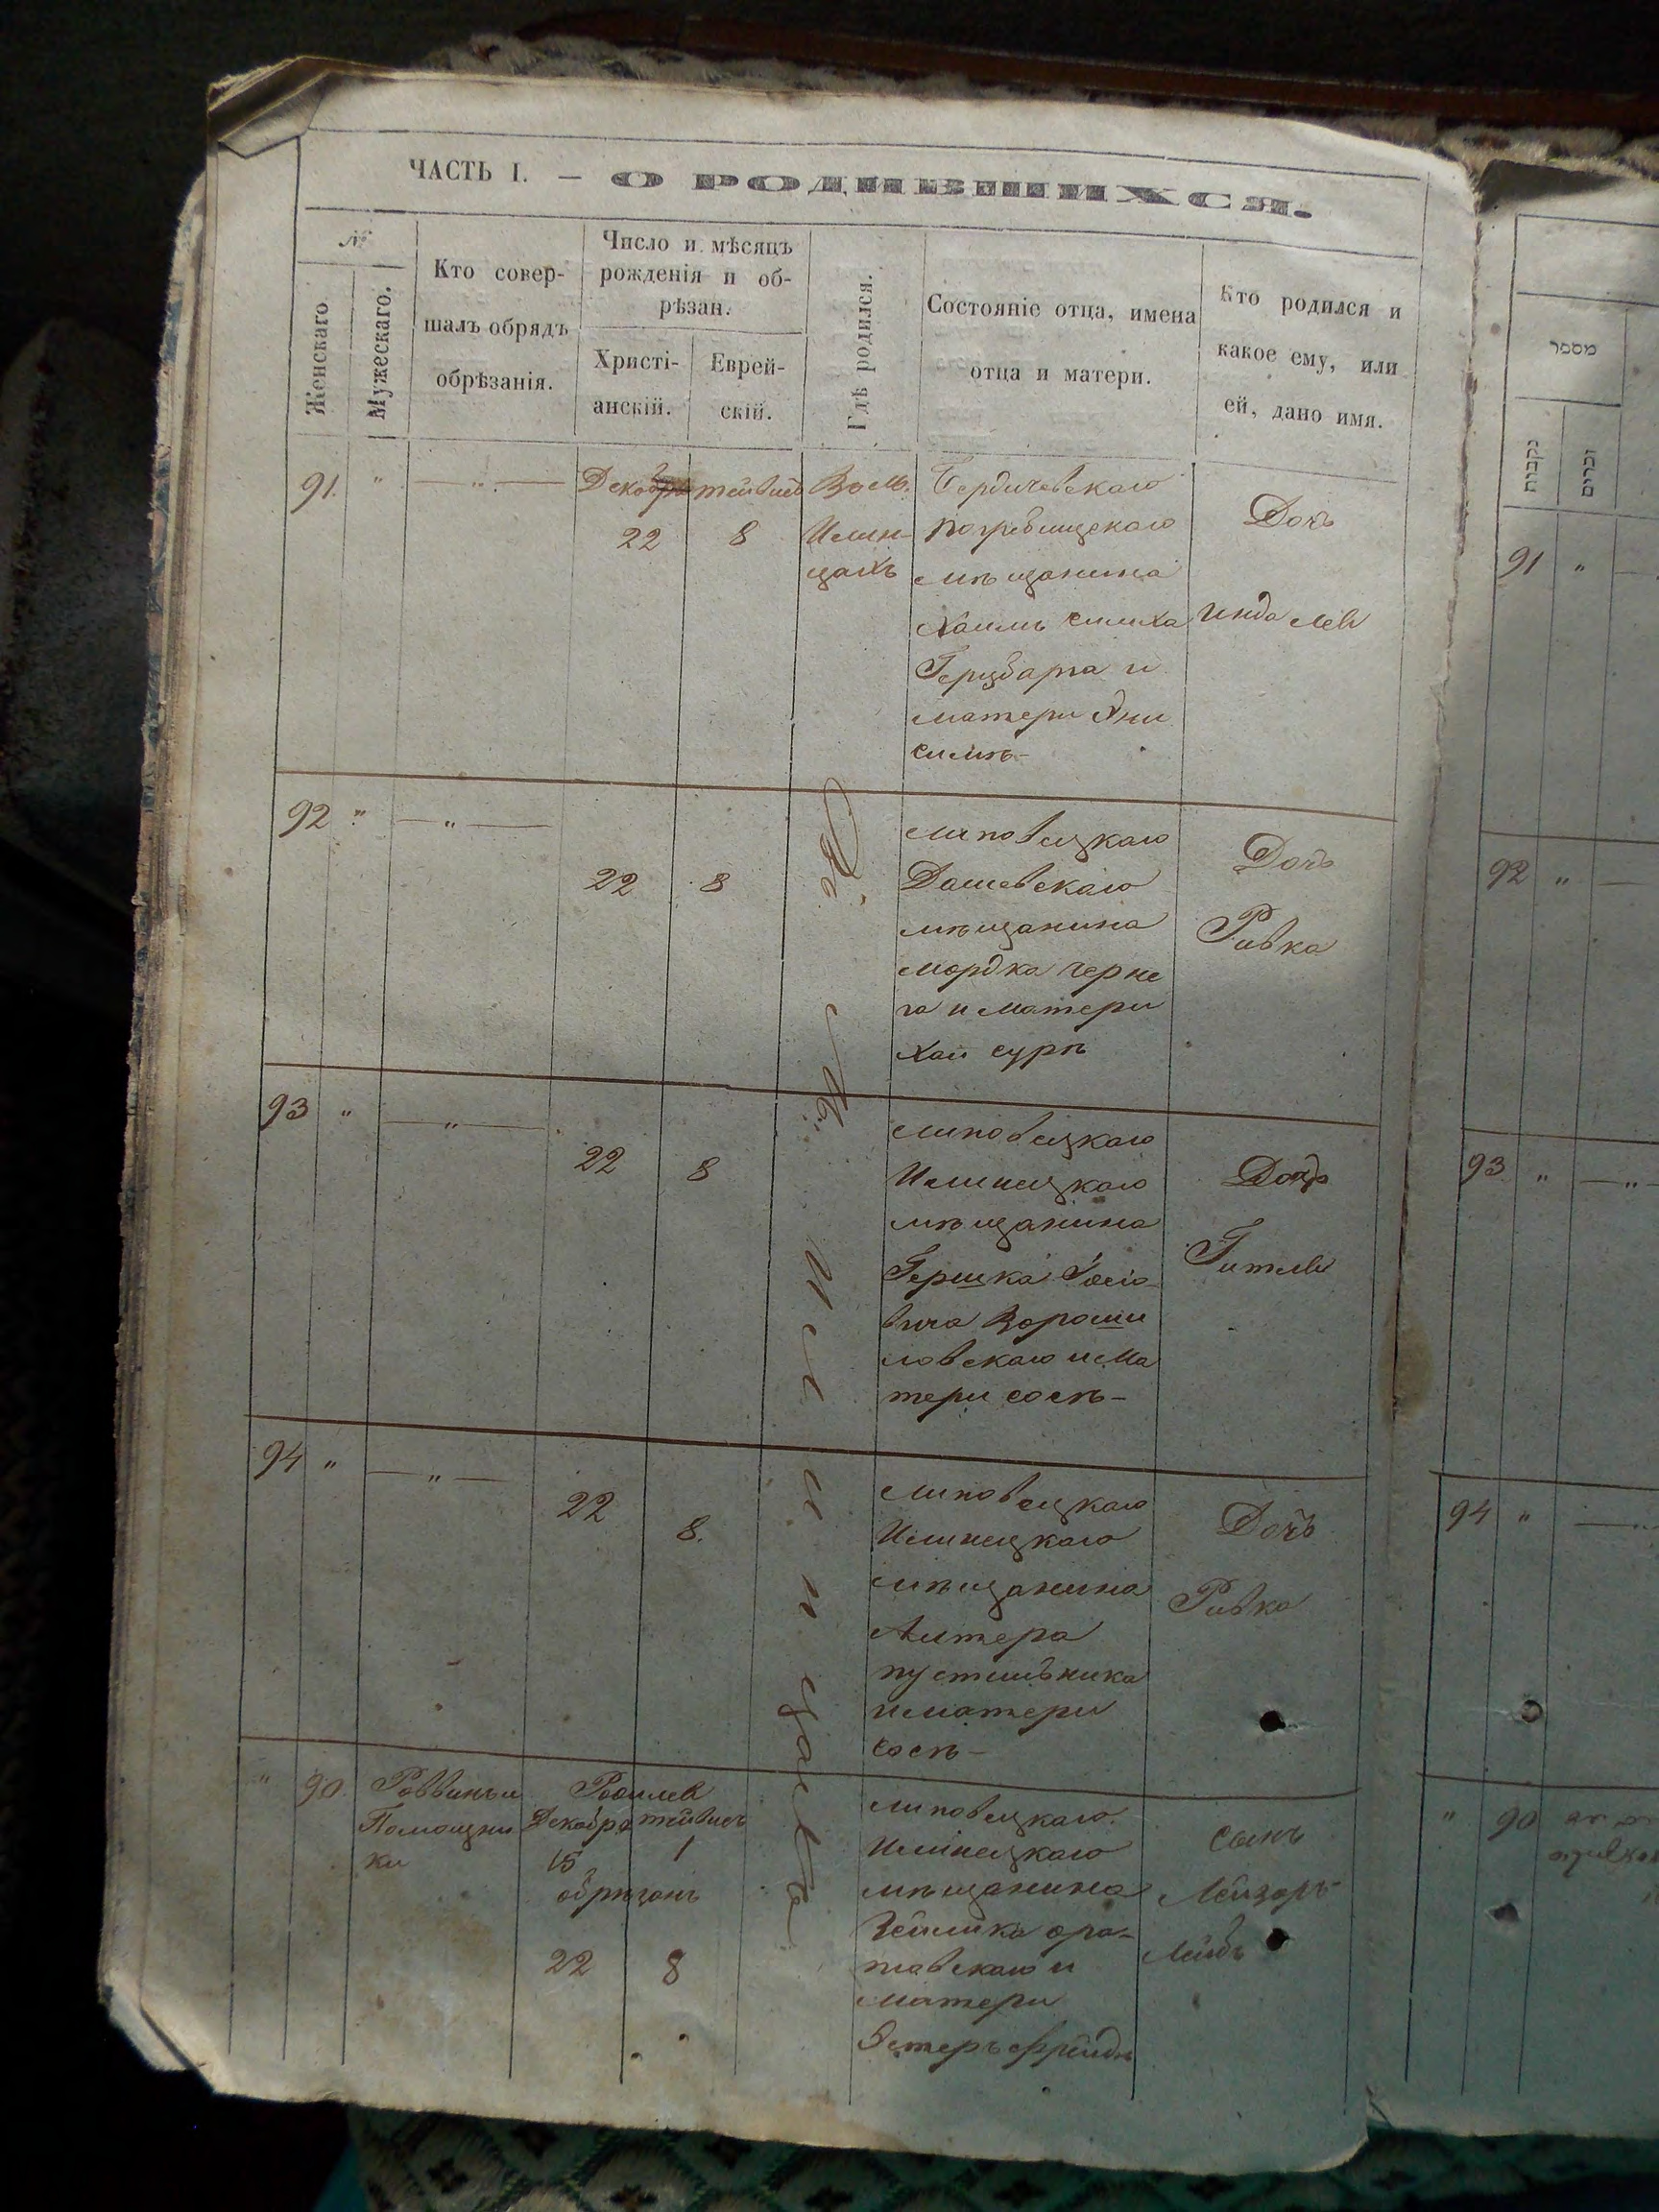 ЧАСТЬ I. — О РОДИВШИХСЯ.
№
Женскаго
Мужескаго.
Кто совер-
шалъ обрядъ
обрѣзанія.
Число и мѣсяцъ
рожденія и об-
рѣзан.
Христі-
анскій.
Еврей-
скій.
Гдѣ родился.
Состояніе отца, имена
отца и матери.
Кто родился и
какое ему, или
ей, дано имя.
91. " — " —
Декабря
22
8
Въ м.
Илин-
цахъ
Бердичевскаго
Погребищскаго
мѣщанина
Хаимъ Симха
и
матери Хни
Симѣ-
Дочь
92 " — " —
22 8
Липовецкаго
Дашевскаго
мѣщанина
Мордка Черне
га и матери
Хаи Сурѣ
Дочь
Ривка
93 " — " —
22 8
Липовецкаго
Илинецкаго
мѣщанина
Гершка Іосіо-
вича Вороши
ловскаго и ма
тери Сосѣ-
Дочь
Гитля
94 " — " —
22 8.
Липовецкаго
Илинецкаго
мѣщанина
Алтера
пустильника
и матери
Сосѣ-
Дочь
Ривка
Въ М. Илинцахъ
" 90. Раввинъ и
Помощни
ки
Родился
Декабря тейвисъ
15 1
обрѣзанъ
22 8
Липовецкаго
Илинецкаго
мѣщанина
Зейлика Ора-
товскаго и
матери
Эстеръ Фрейдѣ
Сынъ
Лейзоръ
Лейбъ
מספר
נקבות
זכרים
91 "
92 " —
93 " — " —
94 "
" 90